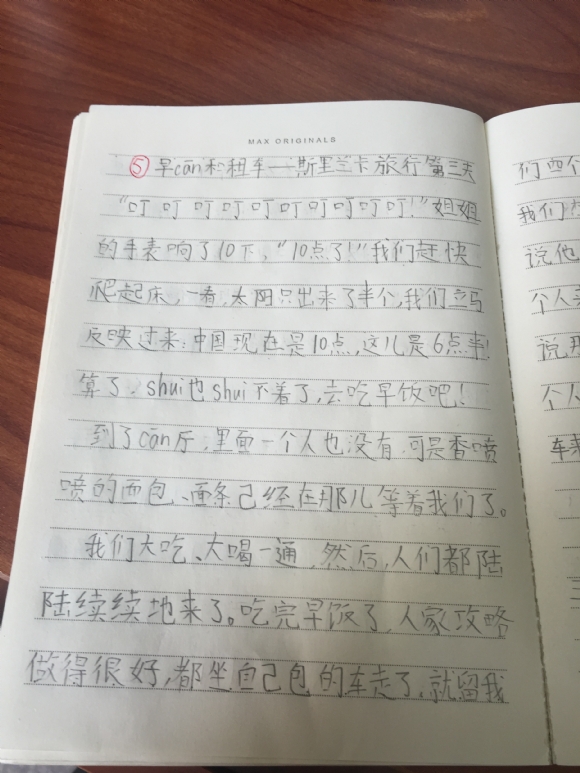 MAX ORIGINALS
⑤早cān和租车——斯里兰卡旅行第三天
“叮叮叮叮叮叮叮叮叮叮!”姐姐
的手表响了10下,“10点了!”我们赶快
爬起床,一看,太阳只出来了半个,我们立马
反映过来:中国现在是10点,这儿是6点半!
算了,shui也shui不着了,去吃早饭吧!
到了cān厅,里面一个人也没有,可是香喷
喷的面包、面条已经在那儿等着我们了。
我们大吃、大喝一通,然后,人们都陆
陆续续地来了。吃完早饭了,人家攻略
做得很好,都坐自己包的车走了,就留我
们四个
我们
说他
个人
说那
个人
车来